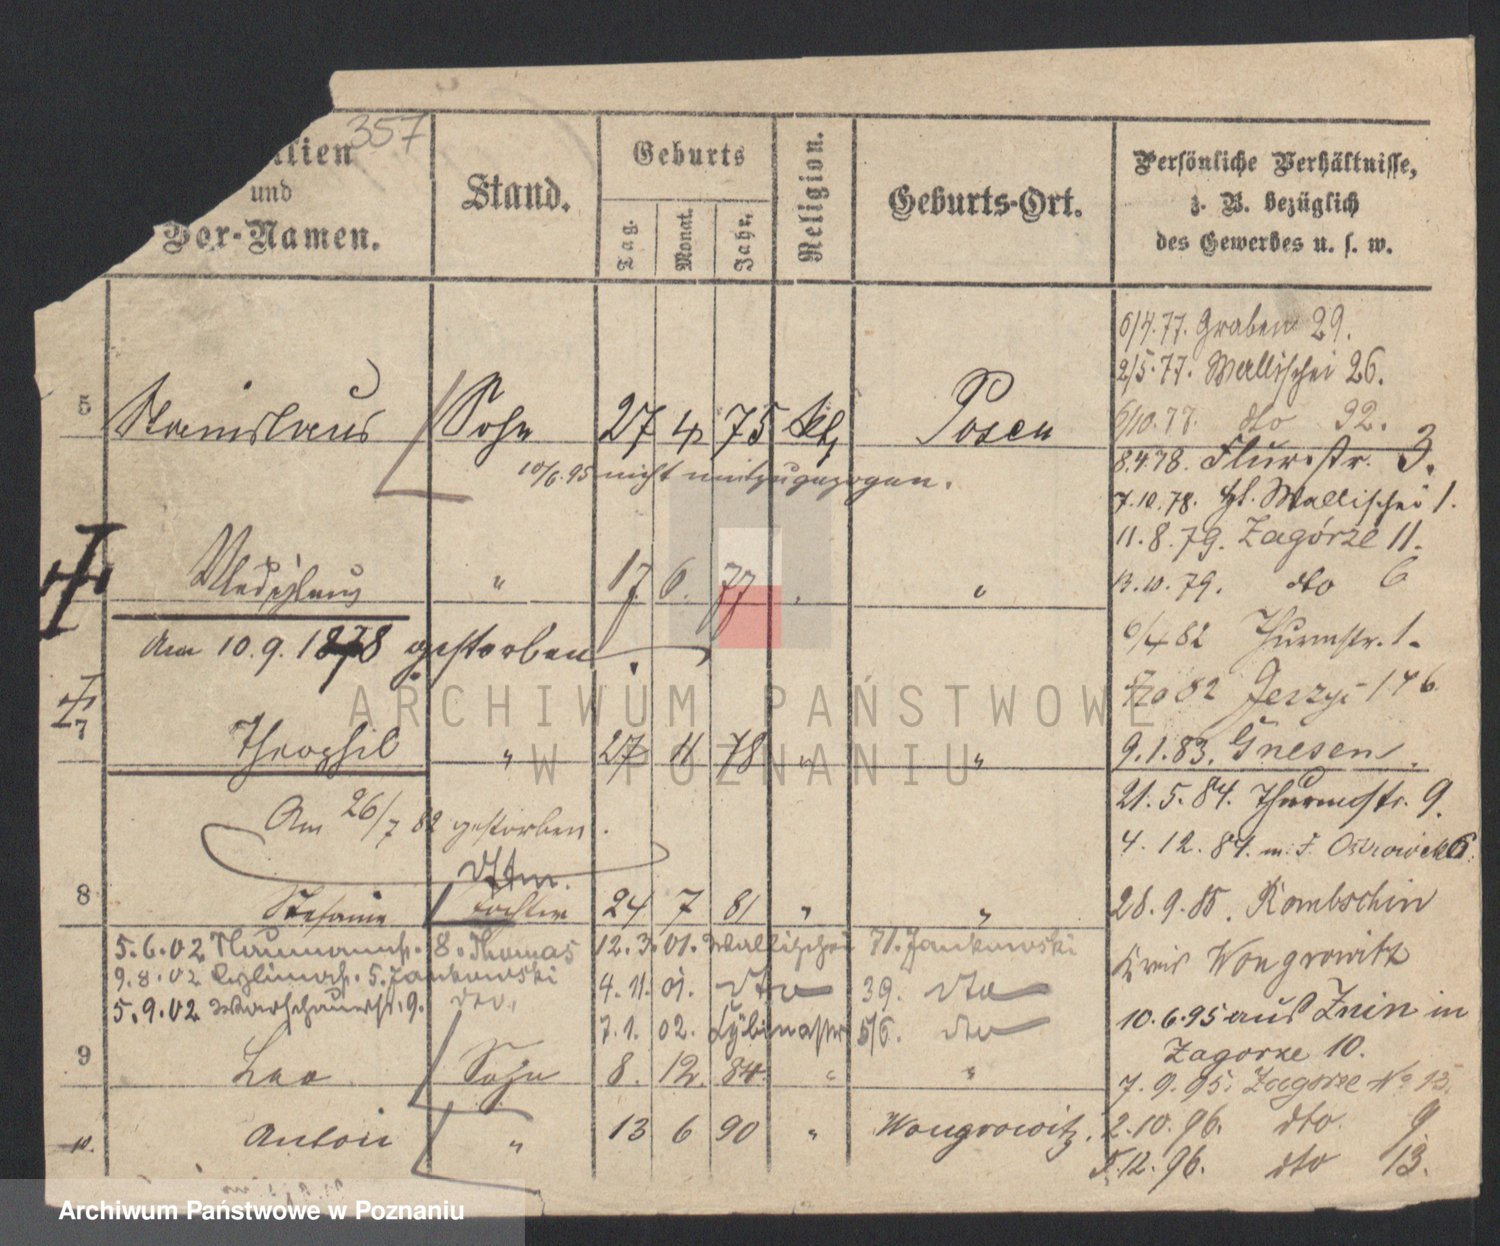 357
Familien und Vor-Namen.
Stand.
Geburts
Tag. Monat. Jahr.
Religion.
Geburts-Ort.
Persönliche Verhältnisse,
z. B. bezüglich
des Gewerbes u. s. w.
6/4.77. Graben 29.
2/5.77. Wallischei 26.
6/10.77. dto 92.
5 Stanislaus Sohn 27 4 75 kth Posen
8.4.78. Flurstr. 3.
10/6.95 nicht mitzugezogen.
7.10.78. Wallischei 1.
11.8.79. Zagórze 11.
" 17. 6. 77 "
13.10.79. dto 6
Am 10.9.1878 gestorben
6/4 82 Thurmstr. 1.
82 Jerzyce 146
7 Theophil " 27 11 78 " "
9.1.83. Gnesen.
21.5.84. Thurmstr. 9.
Am 26/7 82 gestorben.
4.12.84. Ostrowek 6
8 Stefanie Tochter 24 7 81 " "
28.9.85. Kombschin
5.6.02 Naumannstr. 8. Thomas 12.3.01. Wallischei 71. Jankowski
Kreis Wongrowitz
9.8.02 5. Jankowski 4.11.01. dto 39. dto
5.9.02 Warschauerstr. 9. dto. 7.1.02. 5/6. dto
10.6.95 aus Znin in
Zagorze 10.
9 Leo Sohn 8. 12. 84. " "
7.9.95. Zagorze No 15.
10. Anton " 13 6 90 " Wongrowitz.
2.10.96. dto. 9
5.12.96. dto 13.
ARCHIWUM PAŃSTWOWE
W POZNANIU
Archiwum Państwowe w Poznaniu